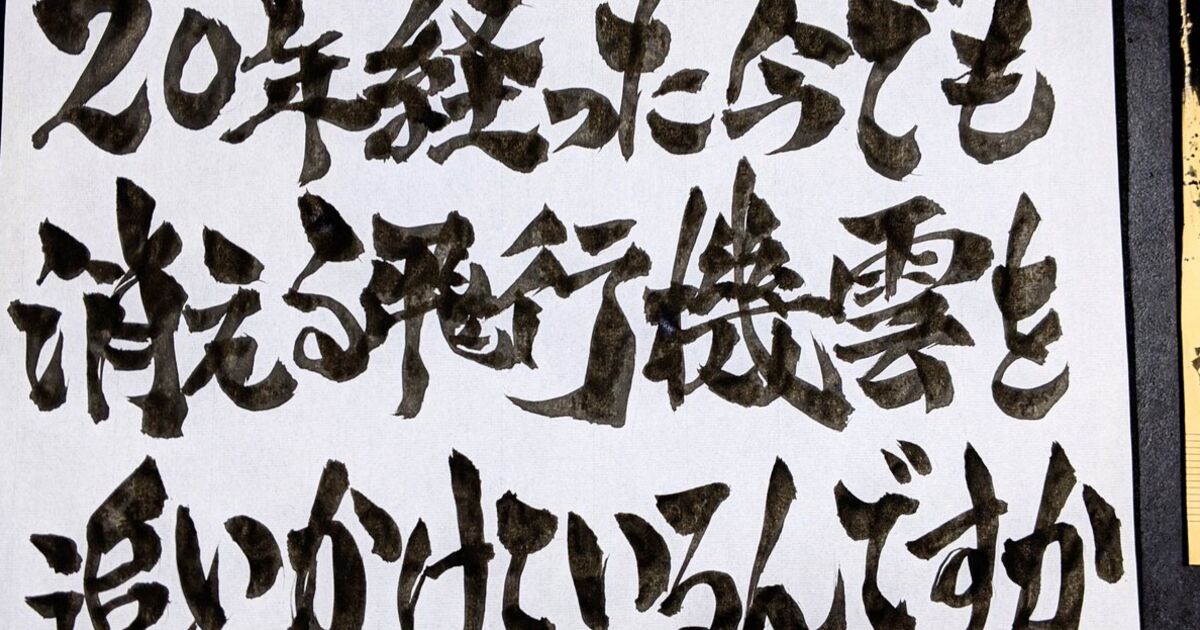 20年経った今でも
消える飛行機雲と
追いかけているんですか